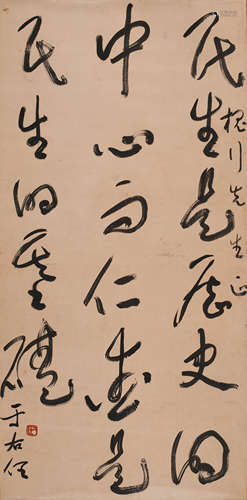 民生是历史的
槐川先生正
中心而仁爱是
民生的基础
于右任